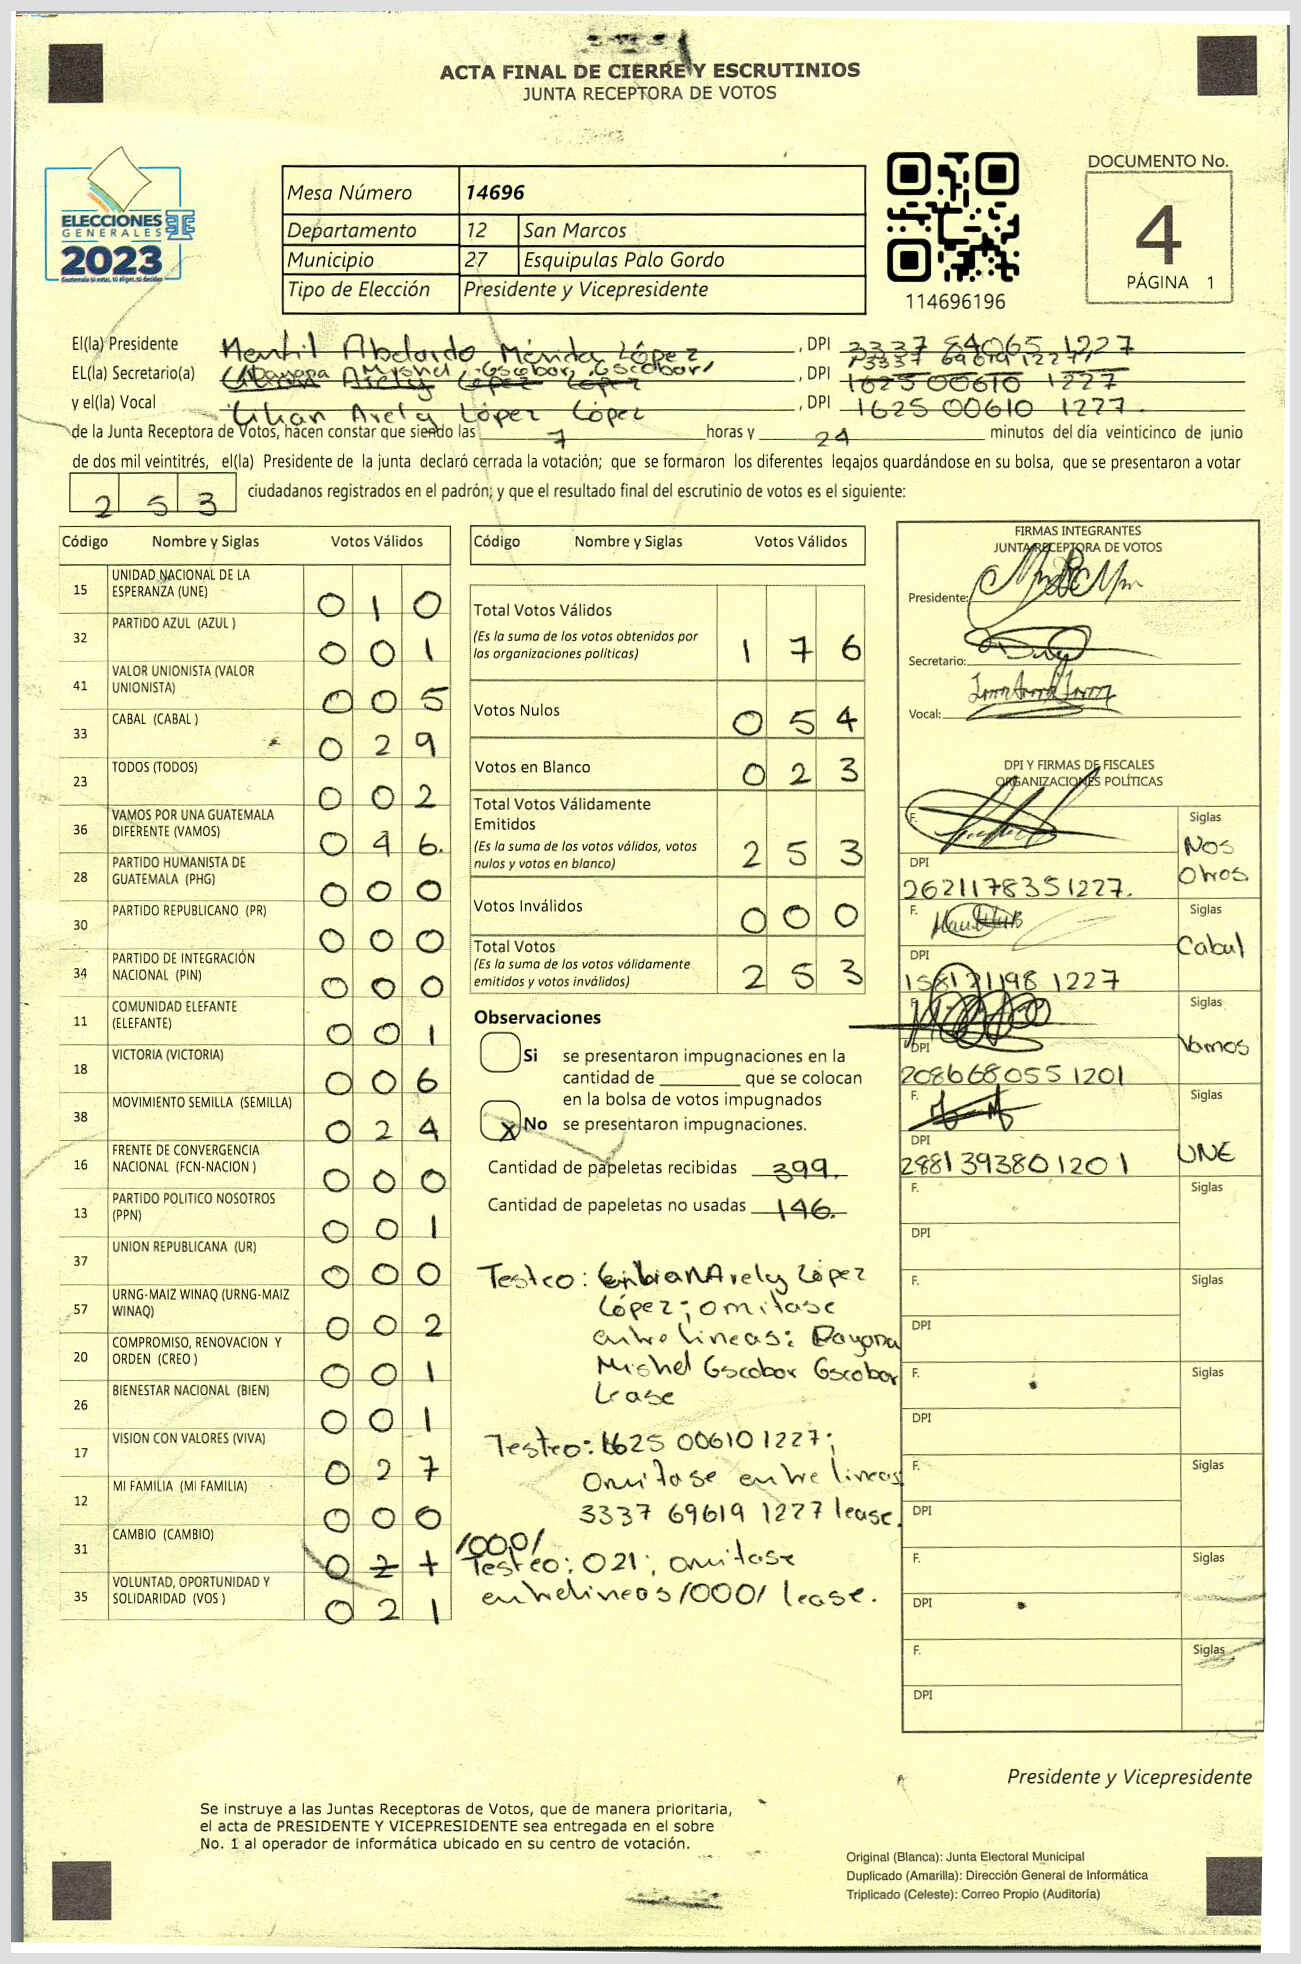 ACTA FINAL DE CIERRE Y ESCRUTINIOS
JUNTA RECEPTORA DE VOTOS
ELECCIONES
GENERALES
2023
Mesa Número 14696
Departamento 12 San Marcos
Municipio 27 Esquipulas Palo Gordo
Tipo de Elección Presidente y Vicepresidente
114696196
DOCUMENTO No.
4
PÁGINA 1
El(la) Presidente Abelardo Mérida López, DPI 3337 84065 1227
EL(la) Secretario(a) Mishel Escobar Escobar, DPI 3337 69619 1227
1625 00610 1227
y el(la) Vocal Lilian Arely López López, DPI 1625 00610 1227.
de la Junta Receptora de Votos, hacen constar que siendo las 7 horas y 24 minutos del día veinticinco de junio
de dos mil veintitrés, el(la) Presidente de la junta declaró cerrada la votación; que se formaron los diferentes legajos guardándose en su bolsa, que se presentaron a votar
253 ciudadanos registrados en el padrón; y que el resultado final del escrutinio de votos es el siguiente:
Código Nombre y Siglas Votos Válidos
15 UNIDAD NACIONAL DE LA ESPERANZA (UNE) 0 1 0
32 PARTIDO AZUL (AZUL ) 0 0 1
41 VALOR UNIONISTA (VALOR UNIONISTA) 0 0 5
33 CABAL (CABAL ) 0 2 9
23 TODOS (TODOS) 0 0 2
36 VAMOS POR UNA GUATEMALA DIFERENTE (VAMOS) 0 4 6.
28 PARTIDO HUMANISTA DE GUATEMALA (PHG) 0 0 0
30 PARTIDO REPUBLICANO (PR) 0 0 0
34 PARTIDO DE INTEGRACIÓN NACIONAL (PIN) 0 0 0
11 COMUNIDAD ELEFANTE (ELEFANTE) 0 0 1
18 VICTORIA (VICTORIA) 0 0 6
38 MOVIMIENTO SEMILLA (SEMILLA) 0 2 4
16 FRENTE DE CONVERGENCIA NACIONAL (FCN-NACION ) 0 0 0
13 PARTIDO POLITICO NOSOTROS (PPN) 0 0 1
37 UNION REPUBLICANA (UR) 0 0 0
57 URNG-MAIZ WINAQ (URNG-MAIZ WINAQ) 0 0 2
20 COMPROMISO, RENOVACION Y ORDEN (CREO ) 0 0 1
26 BIENESTAR NACIONAL (BIEN) 0 0 1
17 VISION CON VALORES (VIVA) 0 2 7
12 MI FAMILIA (MI FAMILIA) 0 0 0
31 CAMBIO (CAMBIO) 0 2 1 /000/
35 VOLUNTAD, OPORTUNIDAD Y SOLIDARIDAD (VOS ) 0 2 1
Código Nombre y Siglas Votos Válidos
Total Votos Válidos 1 7 6
(Es la suma de los votos obtenidos por
las organizaciones políticas)
Votos Nulos 0 5 4
Votos en Blanco 0 2 3
Total Votos Válidamente
Emitidos 2 5 3
(Es la suma de los votos válidos, votos
nulos y votos en blanco)
Votos Inválidos 0 0 0
Total Votos 2 5 3
(Es la suma de los votos válidamente
emitidos y votos inválidos)
Observaciones
Si se presentaron impugnaciones en la
cantidad de ________ que se colocan
en la bolsa de votos impugnados
X No se presentaron impugnaciones.
Cantidad de papeletas recibidas 399.
Cantidad de papeletas no usadas 146.
Testeo: Lilian Arely López
López; omitase
entre lineas: Dayana
Mishel Escobar Escobar
Lease
Testeo: 1625 00610 1227;
Omitase entre lineas
3337 69619 1227 lease.
Testeo: 021; omitase
entrelineas /000/ lease.
FIRMAS INTEGRANTES
JUNTA RECEPTORA DE VOTOS
Presidente:
Secretario:
Vocal:
DPI Y FIRMAS DE FISCALES
ORGANIZACIONES POLÍTICAS
F. Siglas
Nos
Otros
DPI
2621178351227.
F. Siglas
Cabal
DPI
158121198 1227
F. Siglas
Vamos
DPI
2086680551201
F. Siglas
UNE
DPI
2881393801201
F. Siglas
DPI
F. Siglas
DPI
F. Siglas
DPI
F. Siglas
DPI
F. Siglas
DPI
F. Siglas
DPI
Presidente y Vicepresidente
Se instruye a las Juntas Receptoras de Votos, que de manera prioritaria,
el acta de PRESIDENTE Y VICEPRESIDENTE sea entregada en el sobre
No. 1 al operador de informática ubicado en su centro de votación.
Original (Blanca): Junta Electoral Municipal
Duplicado (Amarilla): Dirección General de Informática
Triplicado (Celeste): Correo Propio (Auditoría)